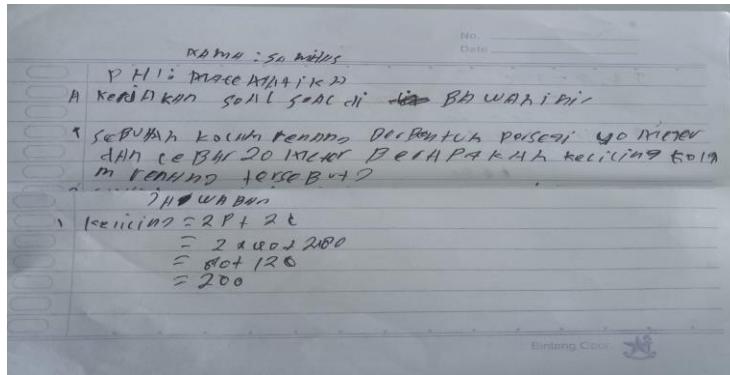 No.
Date
NAMA : SA
PHI : MATEMATIKA
A KERJAKAN SOAL SOAL di BAWAH iNi
1 SEBUAH KOLAM RENANG BERBENTUK persegi 40 METER
DAN LEBAR 20 METER BERAPAKAH keliling KOLA
M RENANG TERSEBUT?
JAWABAN
1 keliling = 2P + 2L
= 2 x 40 +
= 80 + 120
= 200
Bintang Obor